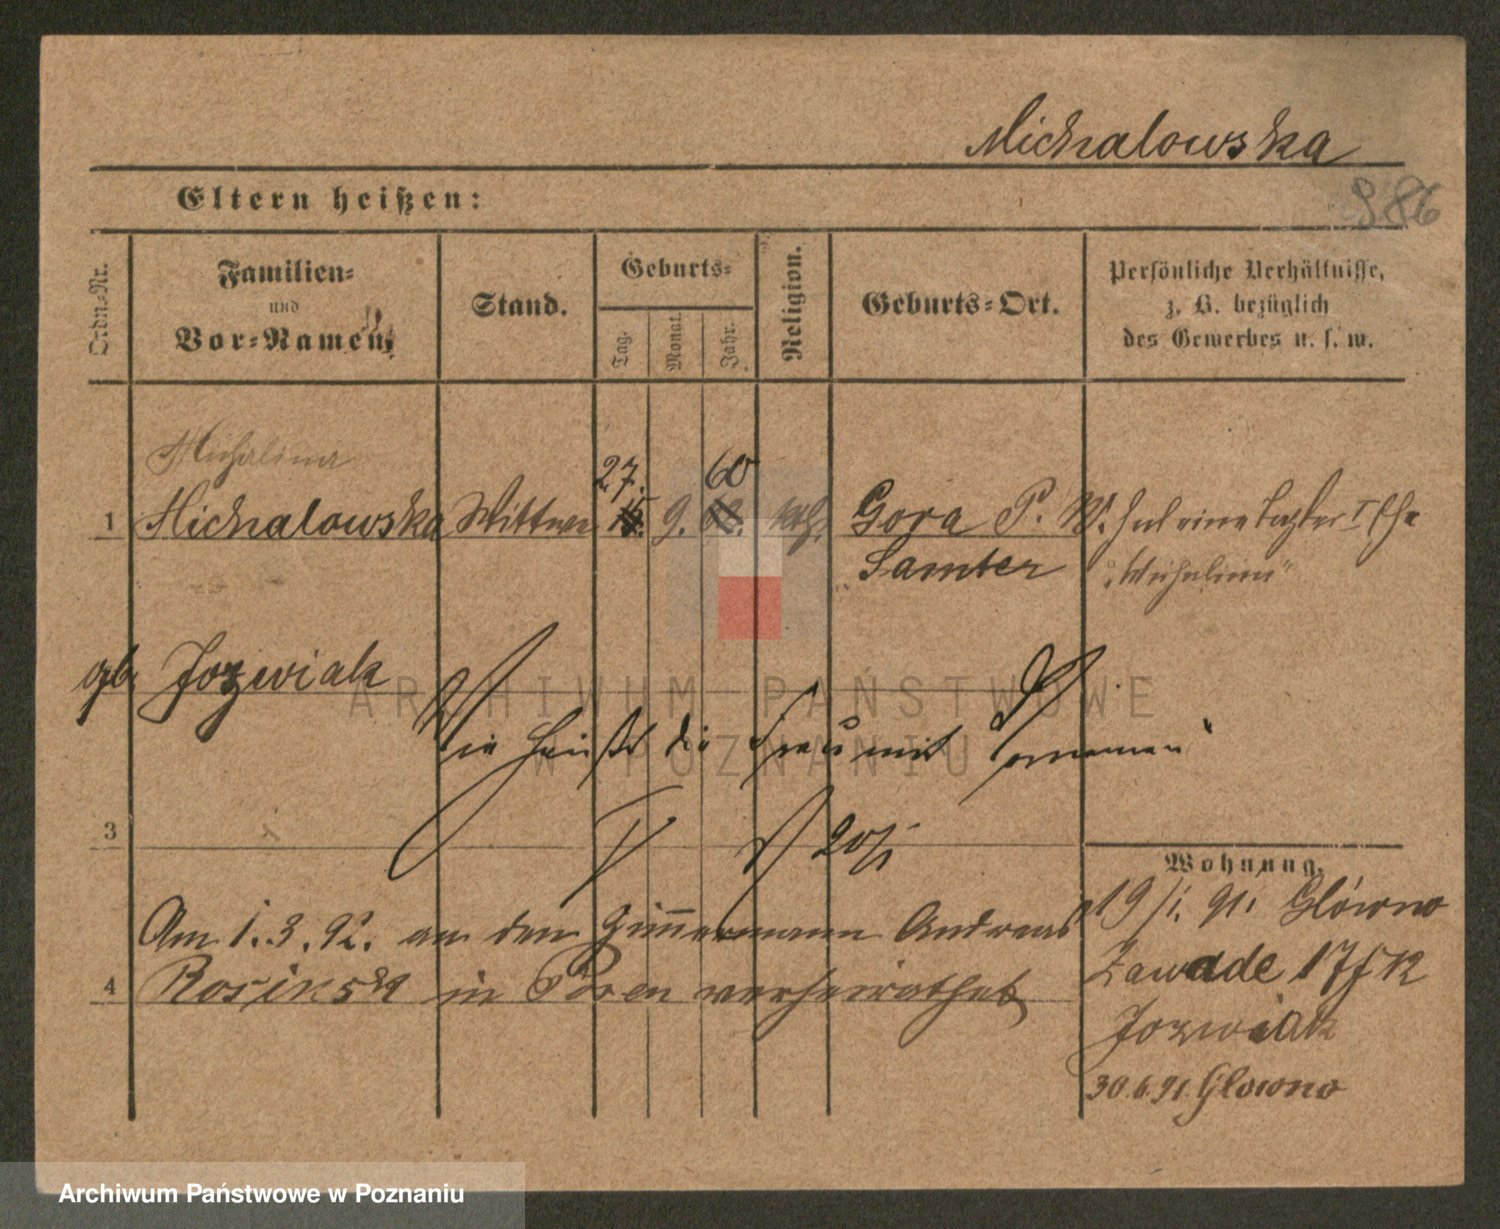 Michalowska
986
Eltern heißen:
Ordn=Nr.
Familien=
und
Vor=Namen
Stand.
Geburts=
Tag.
Monat.
Jahr.
Religion.
Geburts=Ort.
Persönliche Verhältnisse,
z. B. bezüglich
des Gewerbes u. s. w.
Michalina
27. 60
1 Michalowska Wittwe 9. kth. Gora P. W. hat eine Tochter I Ehe
Samter "Michalina"
gb. Jozwiak
Wie heißt die Frau mit Vornamen
3
20/1
Wohnung.
19/1. 91. Glówno
Am 1.3.92. an den Zimmermann Andreas
Zawade 17 f K
4 Rosinski in Posen verheirathet
Jozwiak
30.6.91 Glowno
ARCHIWUM PAŃSTWOWE
W POZNANIU
Archiwum Państwowe w Poznaniu